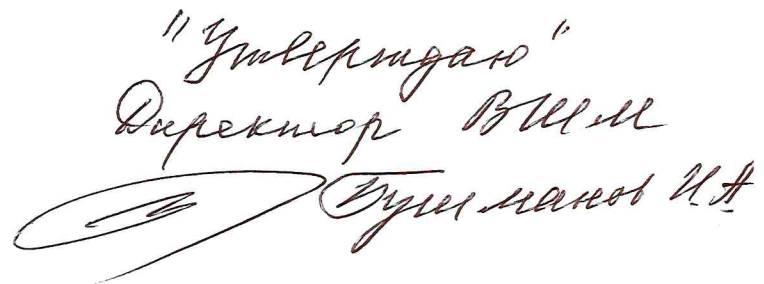 "Утверждаю"
Директор ВШМ
Бушманов И.А